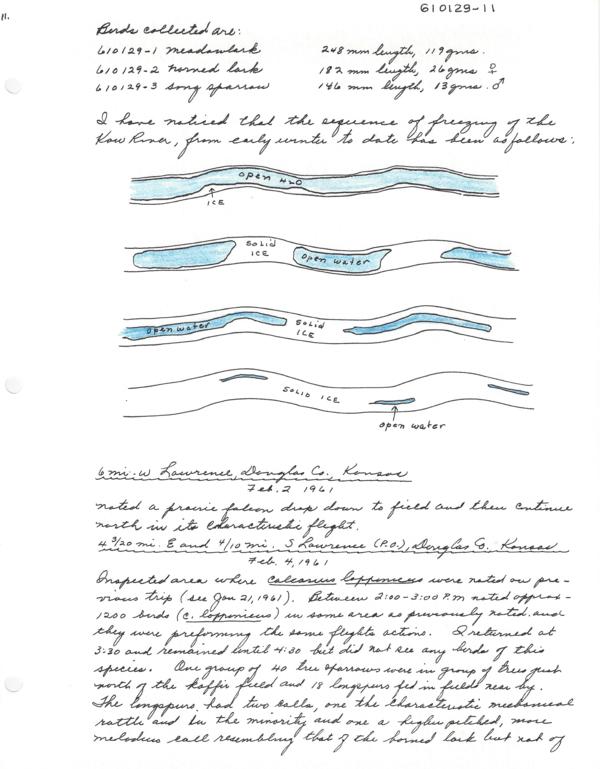 610129-11
11.
Birds collected are:
610129-1 meadowlark 248 mm length, 119 gms.
610129-2 Horned lark 182 mm length, 26 gms ♀
610129-3 song sparrow 146 mm length, 13 gms. ♂
I have noticed that the sequence of freezing of the
Kaw River, from early winter to date has been as follows:
open H2O
ICE
Solid
ICE
open water
open water
Solid
ICE
SOLID ICE
open water
6 mi. W Lawrence, Douglas Co., Kansas
Feb. 2 1961
noted a prairie falcon drop down to field and then continue
north in its characteristic flight.
4 3/20 mi. E and 4/10 mi. S Lawrence (P.O.), Douglas Co. Kansas
Feb. 4, 1961
Inspected area where Calcarius lapponicus were noted on pre-
vious trip (see Jan 21, 1961). Between 2:00-3:00 P.M noted approx-
1200 birds (C. lapponicus) in same area as previously noted and
they were preforming the same flight actions. I returned at
3:30 and remained until 4:30 but did not see any birds of this
species. One group of 40 tree sparrows were in group of trees just
north of the kaffir field and 18 longspurs fed in fields near by.
The longspurs had two calls, one the characteristic mechanical
rattle and in the minority and one a higher pitched, more
melodius call resembling that of the horned lark but not of